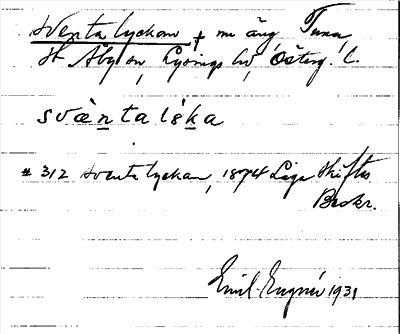 Sventa lyckan † nu äng, Tuna,
St Åby sn, Lysings hd, Österg. l.
svæ̀ntalŏ́ka
# 312 Sventa lyckan, 1874 Laga Skiftes
Beskr.
Emil 1931